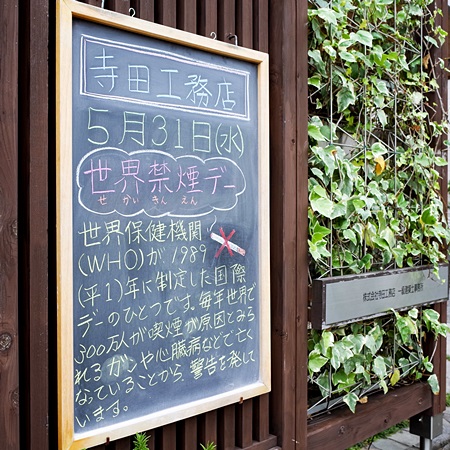 寺田工務店
5月31日(水)
世界禁煙デー
せかいきんえん
世界保健機関
(WHO)が1989
(平1)年に制定した国際
デーのひとつです。毎年世界で
300万人が喫煙が原因とみら
れるガンや心臓病などで亡く
なっていることから、警告を発して
います。
株式会社寺田工務店 一級建築士事務所